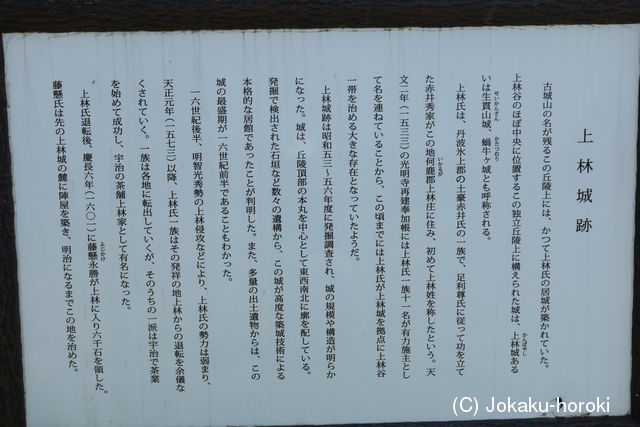 上林城跡
古城山の名が残るこの丘陵上には、かつて上林氏の居城が築かれていた。
上林谷のほぼ中央に位置するこの独立丘陵上に構えられた城は、上林城ある
かんばやし
いは生貫山城、蝸牛ヶ城とも呼称される。
せいかんさん
かたつむり
上林氏は、丹波氷上郡の土豪赤井氏の一族で、足利尊氏に従って功を立て
た赤井秀家がこの地何鹿郡上林庄に住み、初めて上林姓を称したという。天
いかるが
文二年（一五三三）の光明寺再建奉加帳には上林氏一族十一名が有力施主とし
て名を連ねていることから、この頃までには上林氏が上林城を拠点に上林谷
一帯を治める大きな存在となっていたようだ。
上林城跡は昭和五三～五六年度に発掘調査され、城の規模や構造が明らか
になった。城は、丘陵頂部の本丸を中心として東西南北に廓を配している。
発掘で検出された石垣など数々の遺構から、この城が高度な築城技術による
本格的な居館であったことが判明した。また、多量の出土遺物からは、この
城の最盛期が一六世紀前半であることもわかった。
一六世紀後半、明智光秀勢の上林侵攻などにより、上林氏の勢力は弱まり、
天正元年（一五七三）以降、上林氏一族はその発祥の地上林からの退転を余儀な
くされていく。一族は各地に転出していくが、そのうちの一派は宇治で茶業
を始めて成功し、宇治の茶舗上林家として有名になった。
上林氏退転後、慶長六年（一六〇一）に藤懸永勝が上林に入り六千石を領した。
ふじかけ
藤懸氏は先の上林城の麓に陣屋を築き、明治になるまでこの地を治めた。
(C) Jokaku-horoki